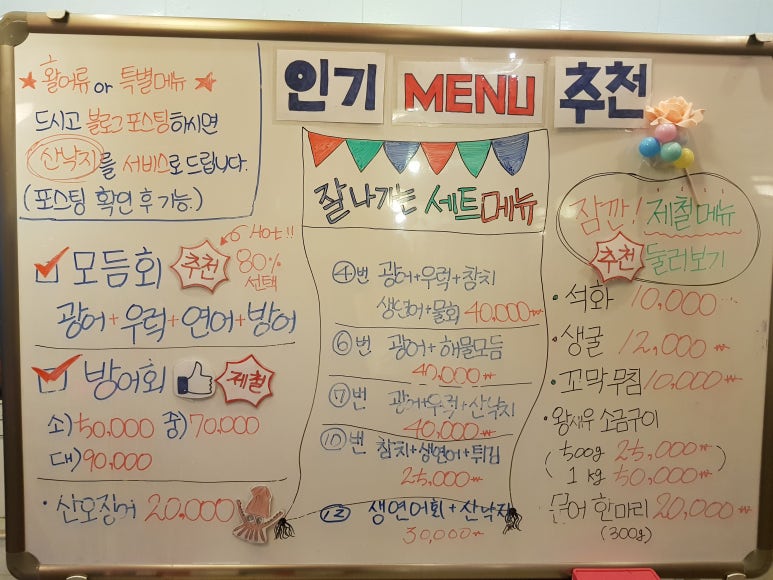 인기 MENU 추천
★ 활어류 or 특별메뉴 ★
드시고 블로그 포스팅하시면
산낙지를 서비스로 드립니다.
(포스팅 확인 후 가능.)
모듬회 추천 Hot!! 80% 선택
광어+우럭+연어+방어
방어회 제철
소)50,000 중)70,000
대)90,000
· 산오징어 20,000
잘나가는 세트메뉴
④번 광어+우럭+참치
생연어+물회 40,000₩
⑥번 광어+해물모듬
40,000₩
⑦번 광어+우럭+산낙지
40,000₩
⑩번 참치+생연어+튀김
25,000₩
⑫ 생연어회+산낙지
30,000₩
잠깐! 제철메뉴
추천 둘러보기
· 석화 10,000
· 생굴 12,000₩
· 꼬막무침 10,000₩
· 왕새우 소금구이
(500g 25,000₩
1kg 50,000₩)
문어 한마리 20,000₩
(300g)